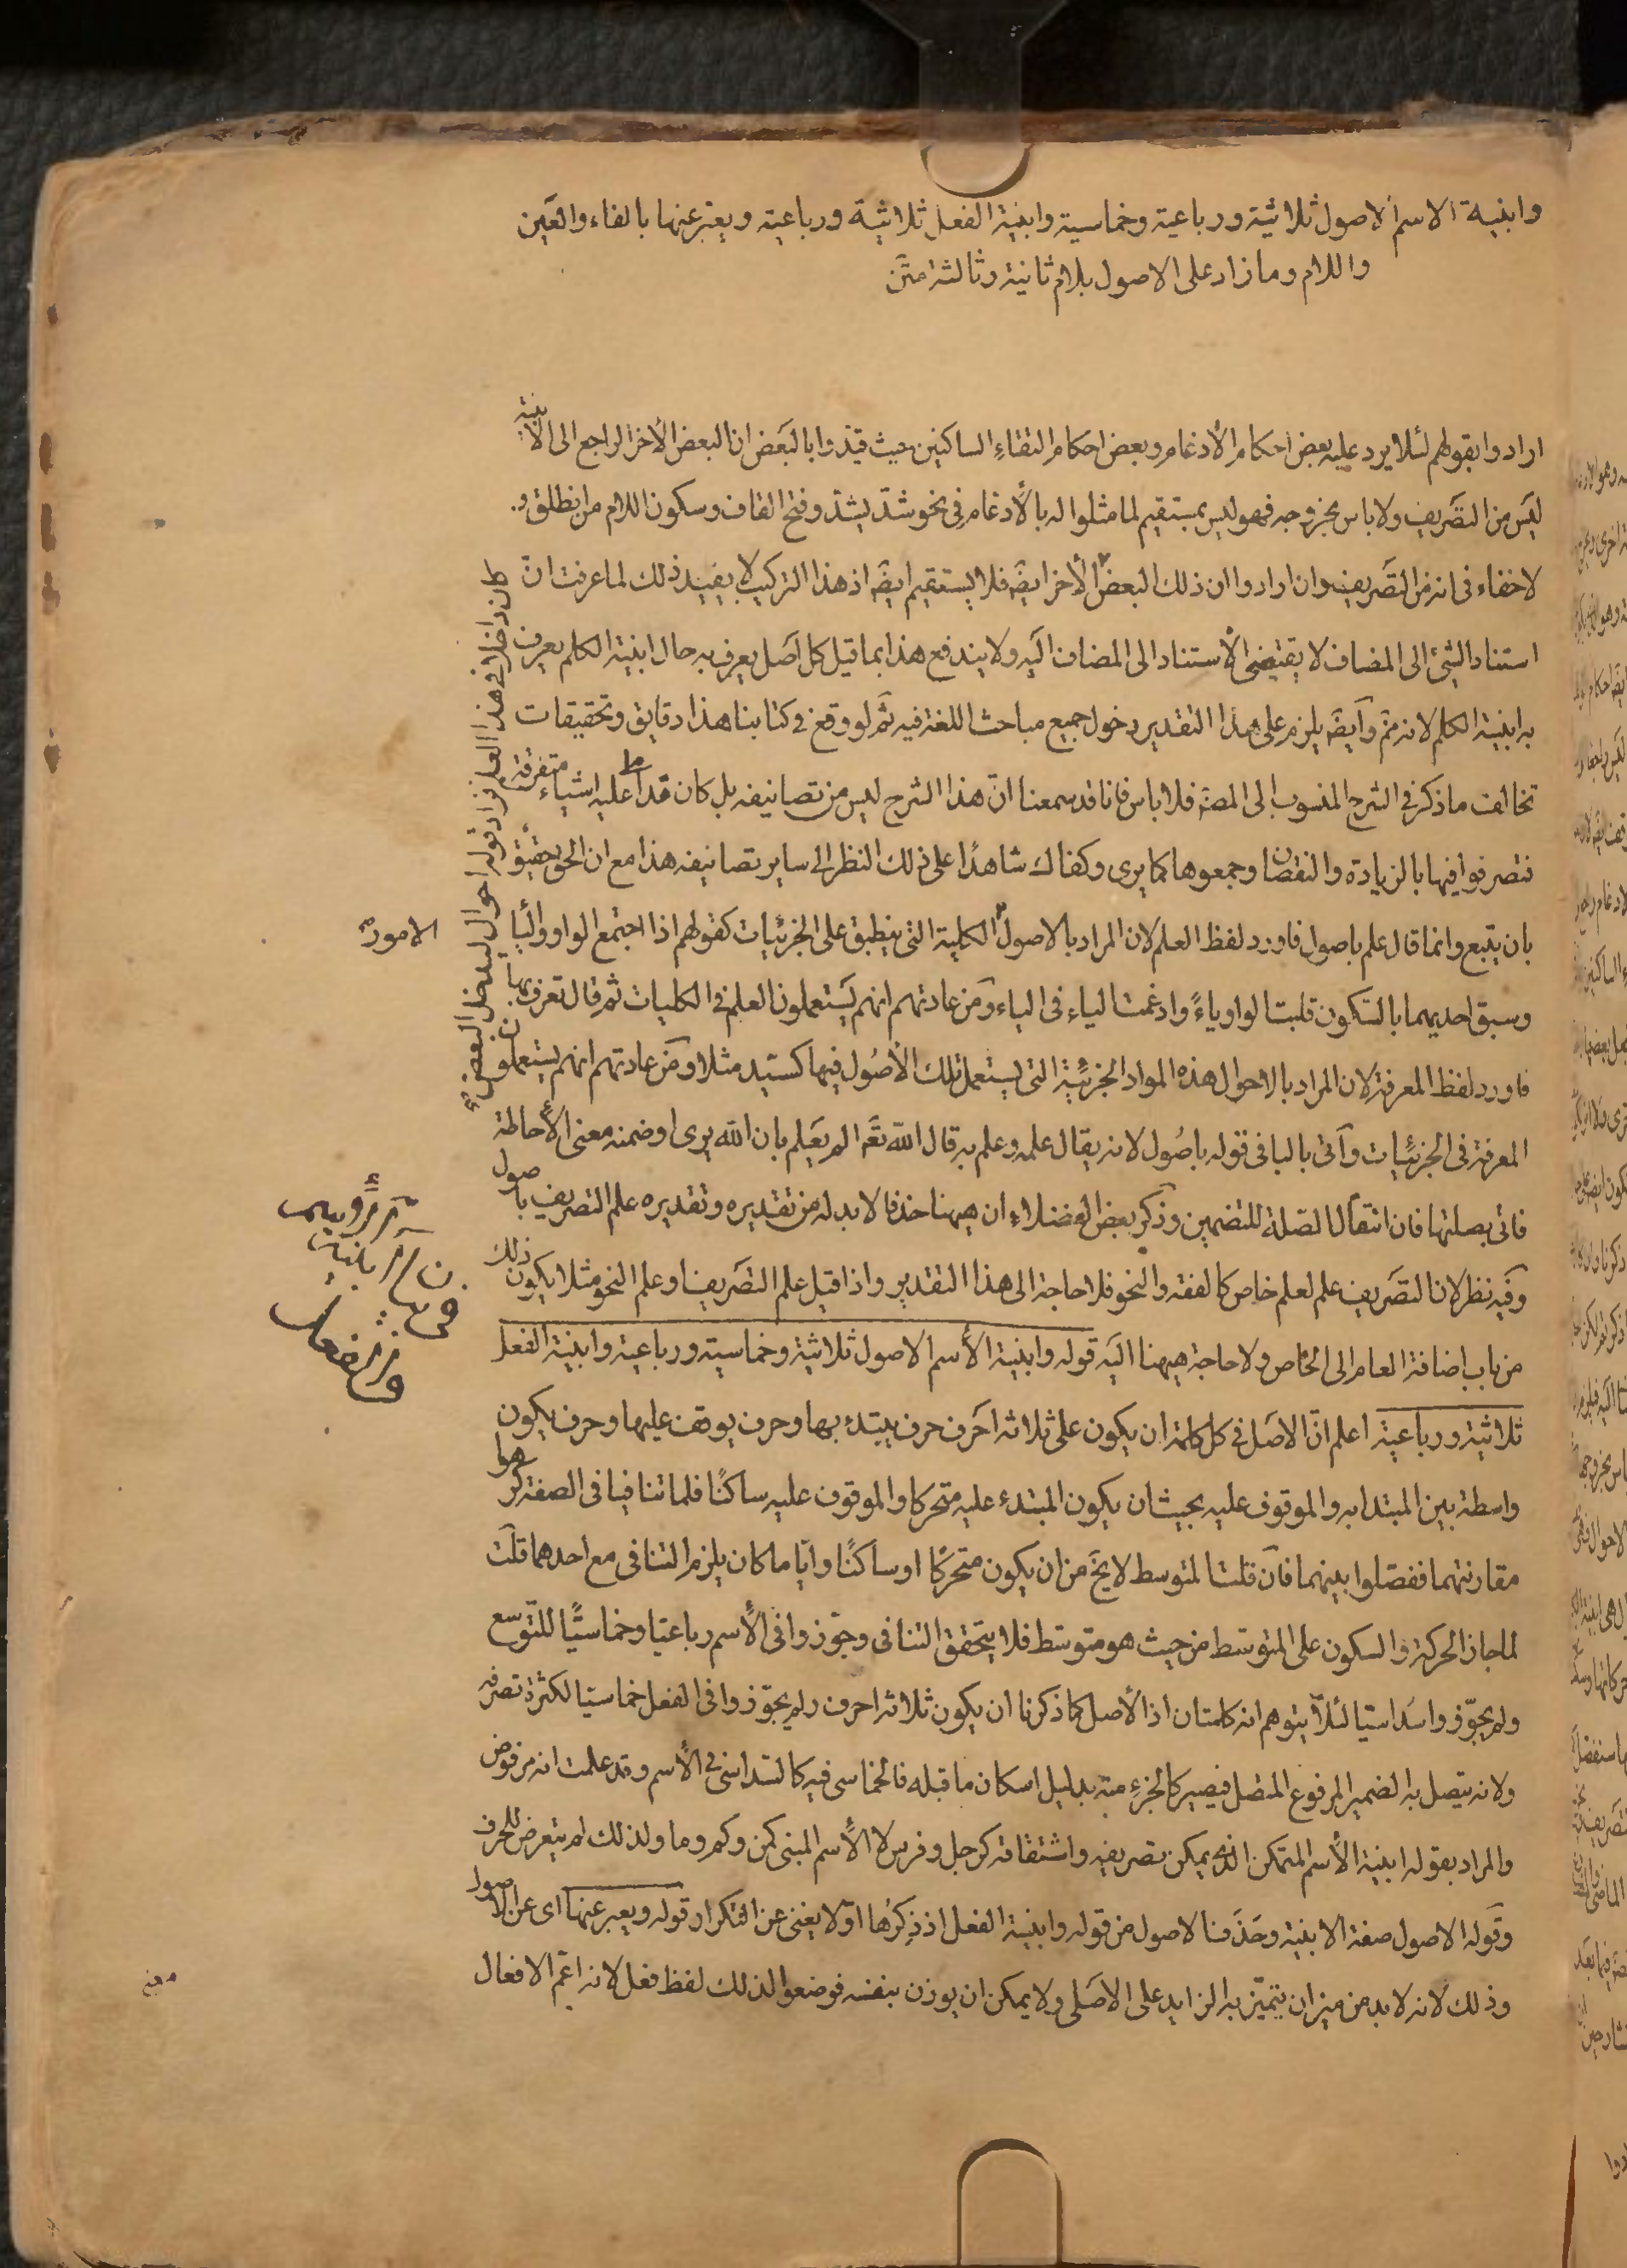 وابنية الاسم الاصول ثلاثية ورباعية وخماسية وابنية الفعل ثلاثية ورباعية ويعبر عنها بالفاء والعين
واللام وما زاد على الاصول بلام ثانية وثالثة متن
ارادوا بقولهم لئلا يرد عليه بعض احكام الأدغام وبعض احكام التقاء الساكنين حيث قيدوا بالبعض ان البعض الأخر الراجع الى الأبنية
ليس من التصريف ولا باس بخروجه فهو ليس بمستقيم لما مثلوا له بالأدغام فى نحو شدّ يشدّ وفتح القاف وسكون اللام من انطلق و
لا خفاء فى انه من التصريف وان ارادوا ان ذلك البعض الأخر ايضه فلا يستقيم ايضه اذ هذا التركيب لا يفيد ذلك لما عرفت انّ
استناد الشئ الى المضاف لا يقتضى الأستناد الى المضاف اليه ولا يندفع هذا بما قيل كل اصل يعرف به حال ابنية الكلم يعرف
به ابنية الكلم لانه ثمّ وايضه يلزم على هذا التقدير دخول جميع مباحث اللغة فيه ثم لو وقع فى كتابنا هذا دقايق وتحقيقات
تخالف ما ذكر فى الشرح المنسوب الى المصه فلا باس فانا قد سمعنا انّ هذا الشرح ليس من تصانيفه بل كان قد املا عليه اشياء متفرقة
فتصرفوا فيها بالزيادة والنقصان وجمعوها كما يرى وكفاك شاهدًا على ذلك النظر الى ساير تصانيفه هذا مع ان الحق حقيق
بان يتبع وانما قال علم باصول فاورد لفظ العلم لان المراد بالاصول الكلية التى ينطبق على الجزئيات كقولهم اذا اجتمع الواو والياء
وسبق احديهما بالسكون قلبت الواو ياءً وادغمت الياء فى الياء ومن عادتهم انهم يستعملون العلم فى الكليات ثم قال تعرف بها
فاورد لفظ المعرفة لان المراد بالاحوال هذه المواد الجزئية التى يستعمل تلك الأصول فيها كسيّد مثلا ومن عادتهم انهم يستعملون
المعرفة فى الجزئيات وآتى بالباء فى قوله باصول لانه يقال علمه وعلم به قال الله تعه الم يعلم بان الله يرى او ضمنه معنى الأحاطة
فاتى بصلتها فان انتقال الصلة للتضمين وذكر بعض الفضلاء ان ههنا حذفا لا بد له من تقديره وتقديره علم التصريف باصول
وفيه نظر لان التصريف علم لعلم خاص كالفقه والنحو فلا حاجة الى هذا التقدير واذا قيل علم التصريف او علم النحو مثلا يكون ذلك
من باب اضافة العام الى الخاص ولا حاجة ههنا اليه قوله وابنية الأسم الاصول ثلاثية وخماسية ورباعية وابنية الفعل
ثلاثية ورباعية اعلم انّ الاصل فى كل كلمة ان يكون على ثلاثة احرف حرف يبتدء بها وحرف يوقف عليها وحرف يكون
واسطة بين المبتدا به والموقوف عليه بحيث ان يكون المبتدء عليه متحركا والموقوف عليه ساكنًا فلما تنافيا فى الصفة كرهوا
مقارنتهما ففصّلوا بينهما فان قلت المتوسط لا يخ من ان يكون متحركًا او ساكنًا وايّا ما كان يلزم التنافى مع احدهما قلت
لما جاز الحركة والسكون على المتوسط من حيث هو متوسط فلا يتحقق التنافى وجوّزوا فى الأسم رباعيا وخماسيًّا للتّوسع
ولم يجوّزوا سداسيا لئلّا يتوهم انه كلمتان اذ الأصل كما ذكرنا ان يكون ثلاثة احرف ولم يجوّزوا فى الفعل خماسيا لكثرة تصرفه
ولانه يتصل به الضمير المرفوع المتصل فيصير كالجزءِ منه بدليل اسكان ما قبله فالخماسى فيه كالسداسى فى الأسم وقد علمت انه مرفوض
والمراد بقوله ابنية الأسم المتمكن الذى يمكن تصريفه واشتقاقه كرجل وفرس لا الأسم المبنى كمن وكم وما ولذلك لم يتعرض للحرف
وقوله الاصول صفة الابنية وحذفنا لاصول من قوله وابنية الفعل اذ ذكرها اوّلا يغنى عن التكرار قوله ويعبر عنها اى عن الاصول
وذلك لانه لا بد من ميزان يتميّز به الزايد على الاصلى ولا يمكن ان يوزن بنفسه فوضعوا لذلك لفظ فعل لانه اعمّ الافعال
الامور
معنى